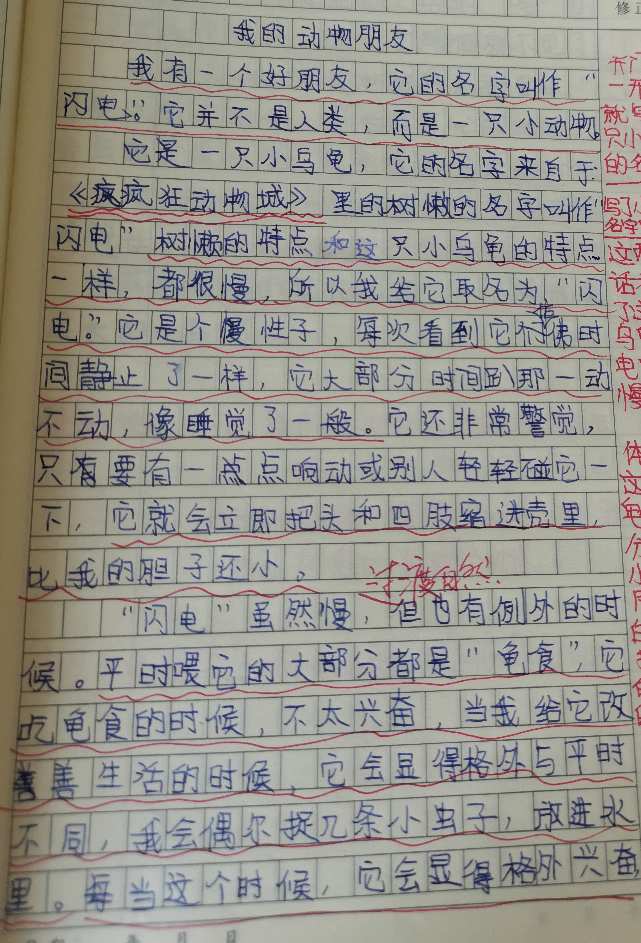 修正
我的动物朋友
我有一个好朋友，它的名字叫作“
闪电”。它并不是人类，而是一只小动物。
它是一只小乌龟，它的名字来自于
《疯疯狂动物城》里的树懒的名字叫作“
闪电”树懒的特点和这只小乌龟的特点
一样，都很慢，所以我给它取名为“闪
电。”它是个慢性子，每次看到它仿佛时
间静止了一样，它大部分时间趴那一动
不动，像睡觉了一般。它还非常警觉，
只有要有一点点响动或别人轻轻碰它一
下，它就会立即把头和四肢缩进壳里，
比我的胆子还小。
过渡自然
“闪电”虽然慢，但也有例外的时
候。平时喂它的大部分都是“龟食”，它
吃龟食的时候，不太兴奋，当我给它改
善善生活的时候，它会显得格外与平时
不同，我会偶尔捉几条小虫子，放进水
里。每当这个时候，它会显得格外兴奋，
年 月 日